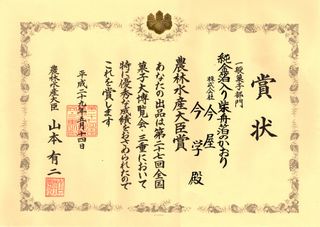 賞状
一般菓子部門
純金箔入り柴舟のかおり
株式会社 今屋
今 学 殿
農林水産大臣賞
あなたの出品は第二十七回全国
菓子大博覧会・三重において
特に優秀な成績をおさめられたので
これを賞します
平成二十九年五月十四日
農林水産大臣 山本有二